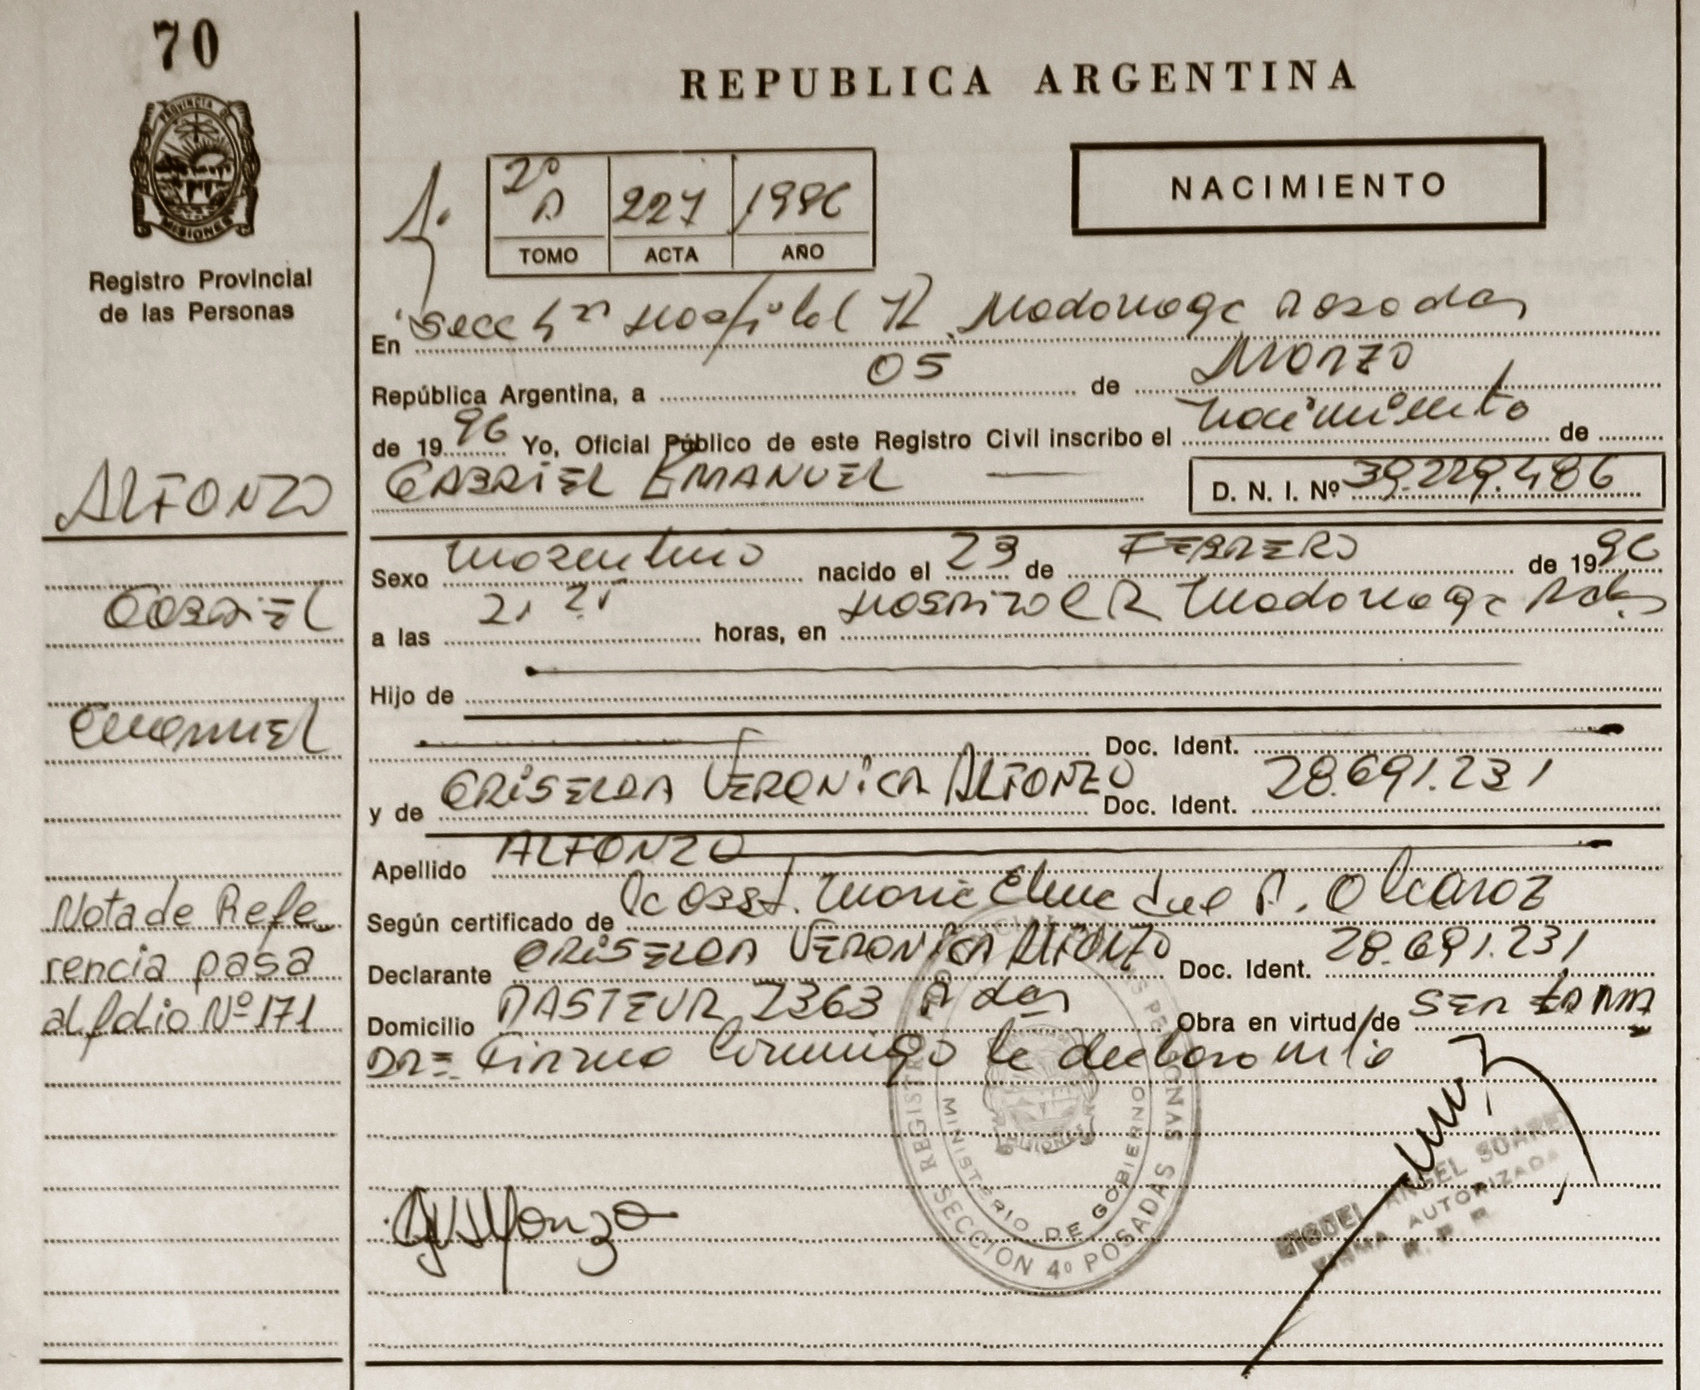 70
REPUBLICA ARGENTINA
PROVINCIA DE
MISIONES
NACIMIENTO
2º A 227 1996
TOMO ACTA AÑO
Registro Provincial
de las Personas
En Secc 4ta Hospital R. Madariaga Posadas
República Argentina, a 05 de Marzo
de 1996 Yo, Oficial Público de este Registro Civil inscribo el nacimiento de
ALFONZO
GABRIEL EMANUEL
D. N. I. Nº 39.229.486
Sexo masculino nacido el 23 de FEBRERO de 1996
Gabriel
a las 21 horas, en HOSPITAL R Madariaga Pdas
Hijo de
Emanuel
Doc. Ident.
y de GRISELDA VERONICA ALFONZO Doc. Ident. 28.691.231
Apellido ALFONZO
Según certificado de la obst. Maria Elena del P. Alcaraz
Declarante GRISELDA VERONICA ALFONZO Doc. Ident. 28.691.231
Domicilio PASTEUR 2363 Pdas Obra en virtud de SER LA MA
DRE Firma conmigo la declarante
Nota de Refe_
rencia pasa
al folio Nº 171
MINISTERIO DE GOBIERNO
SECCION 4º POSADAS
MIGUEL ANGEL SUAREZ
FIRMA AUTORIZADA
R. P. P.